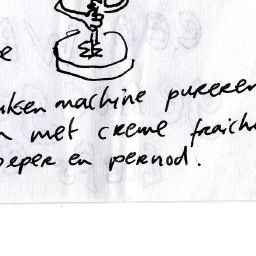 e
uken machine pureren
n met creme fraiche
peper en pernod.